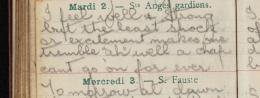 Mardi 2. — Sts Anges gardiens.
I feel well & strong
but the least shock
or excitement makes one
tremble. Ah well a chap
cant go on for ever
Mercredi 3. — S. Fauste
Tomorrow at dawn